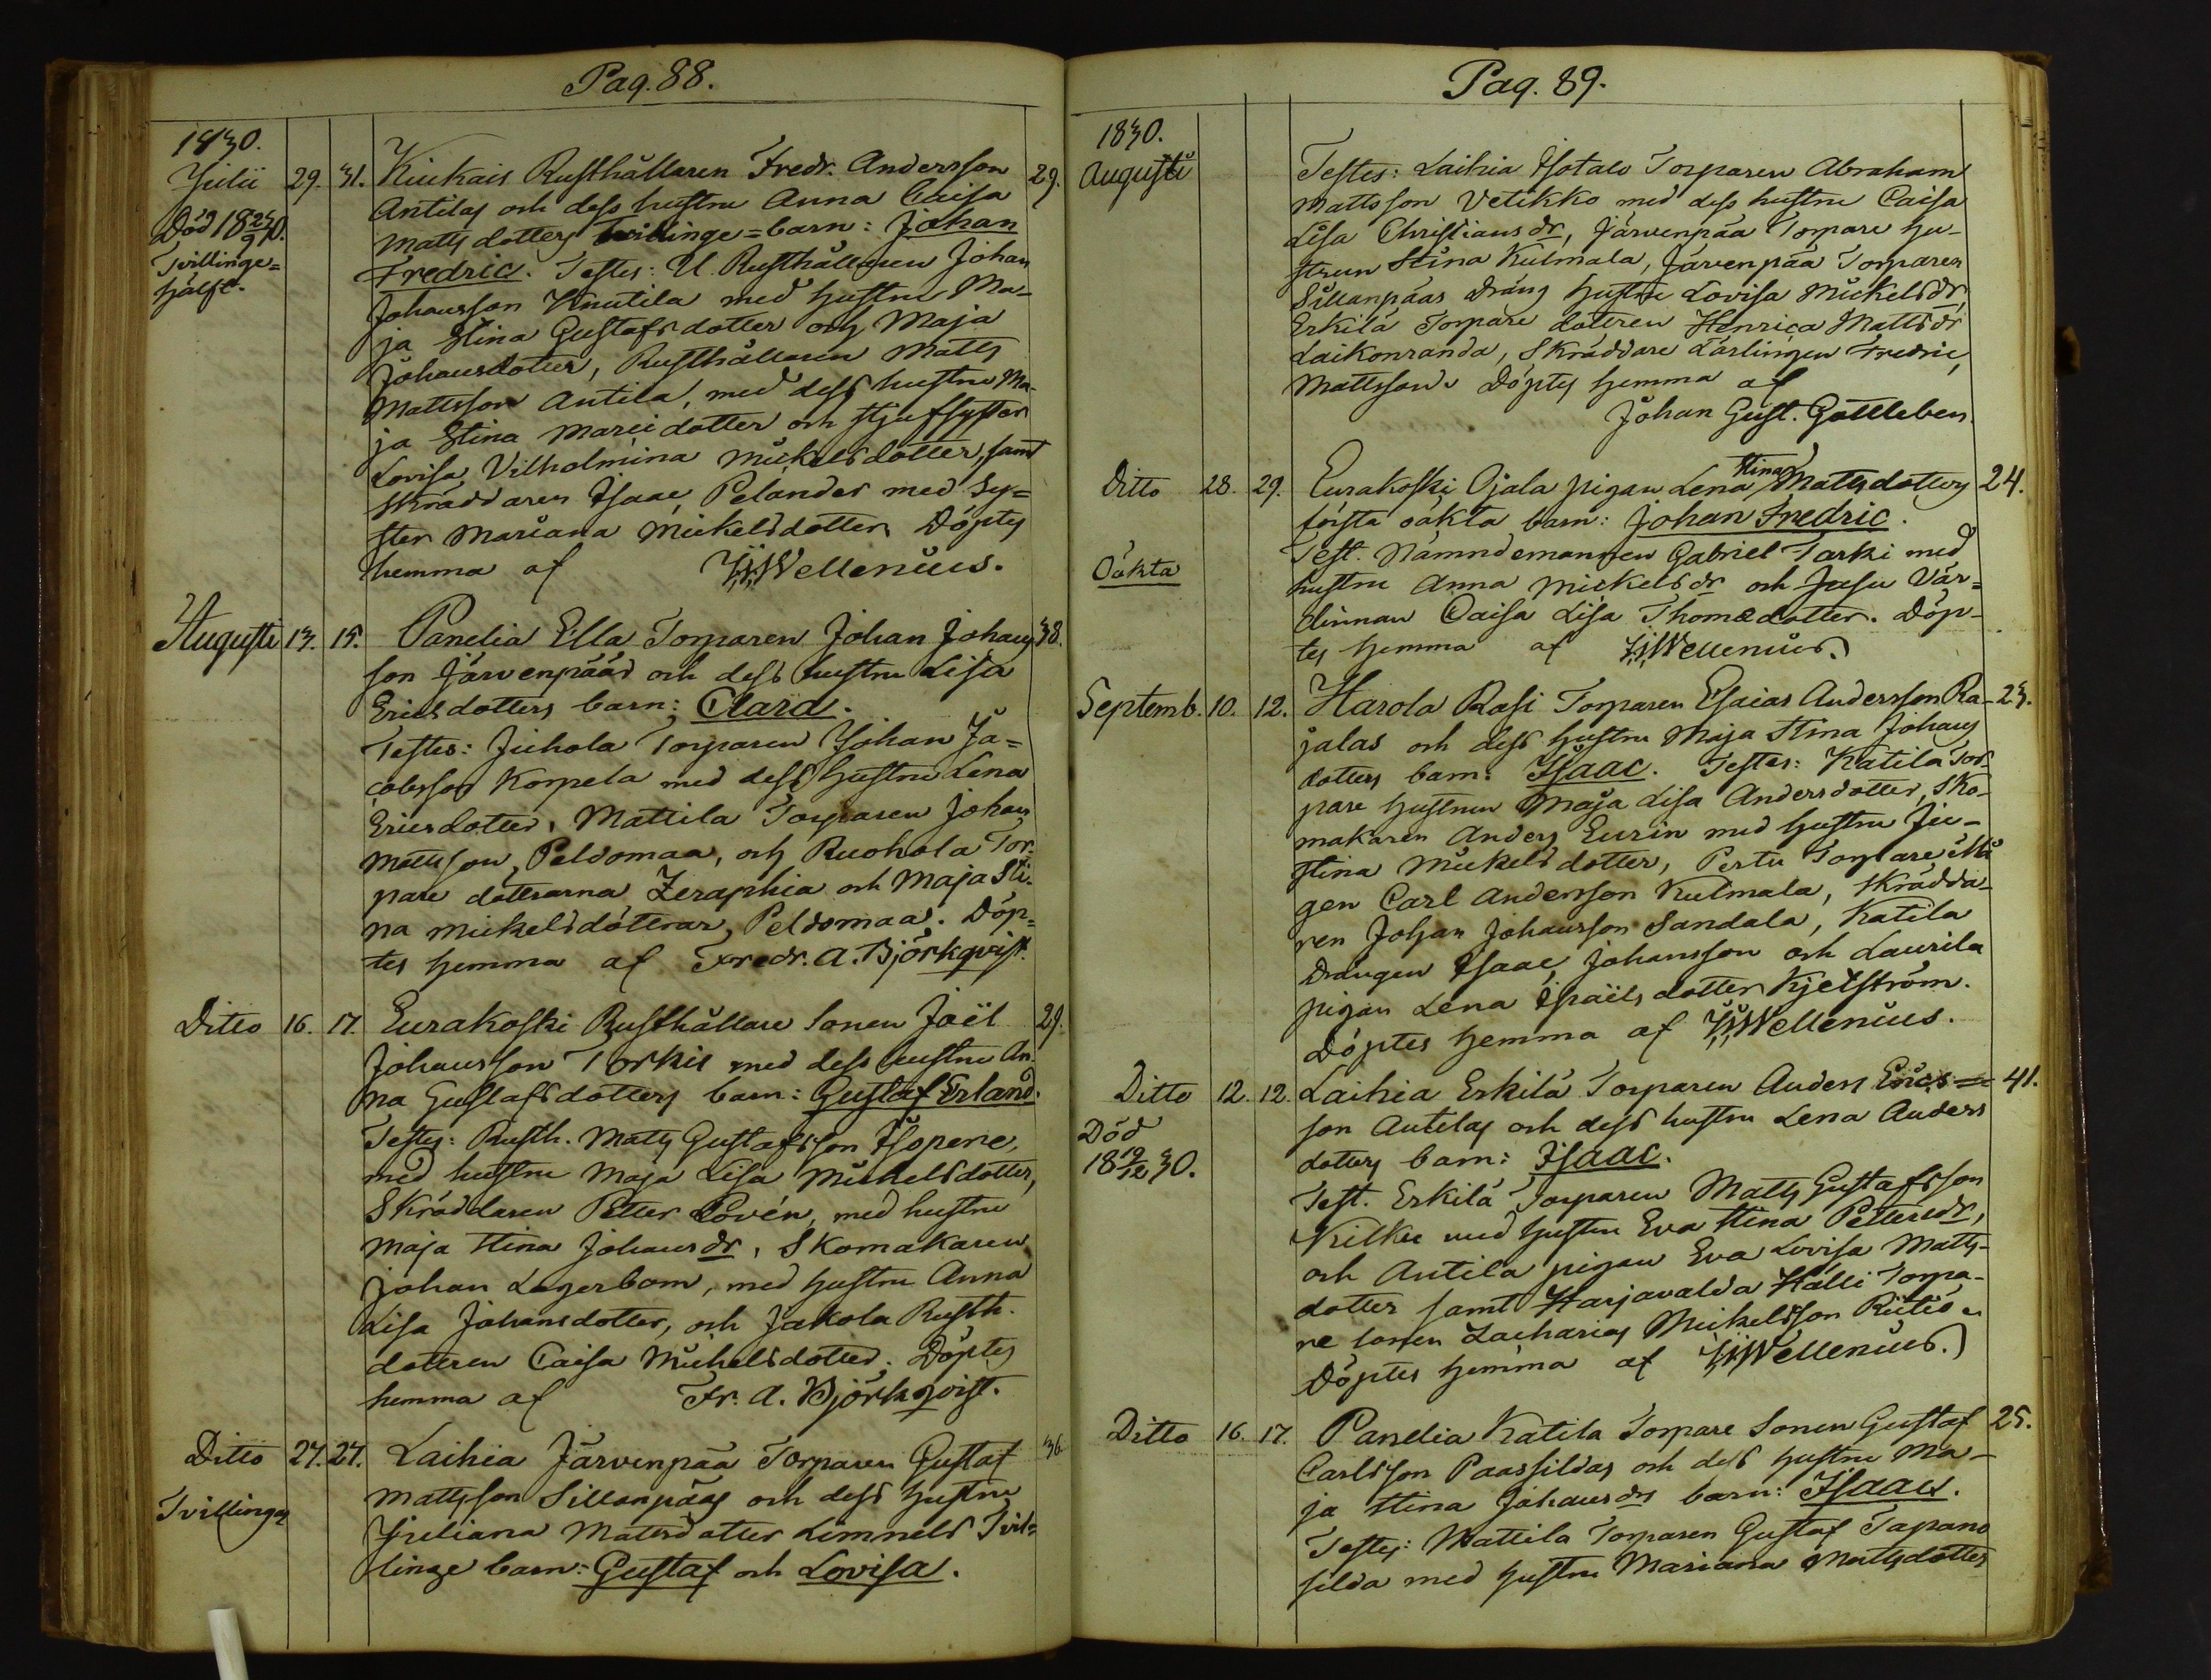 Pag. 88.
1830.
Julii 29. 31. Kiukais Rusthållaren Fredr. Andersson 29.
Antilas och dess hustru Anna Caisa
Död 18 24/9 30. Matts dotters tvillinge=barn: Johan
Tvillinge=
hälft.
Fredric. Testes: U. Rusthållaren Johan
Johansson Knutila med hustru Ma-
ja Stina Gustafsdotter och Maja
Johansdotter, Rusthållaren Matts
Mattsson Antila, med dess hustru Ma-
ja Stina Marci dotter och Stjufsyster
Lovisa Vilhelmina Mickelsdotter, samt
Skräddaren Isaac Pelander med Sy=
ster Mariana Mickelsdotter. Döptes
hemma af Wellenius.
Augusti 13. 15. Panelia Ella Torparen Johan Johans 38.
son Järvenpääs och dess hustru Lisa
Ericsdotters barn: Clara.
Testes: Jiehola Torparen Johan Ja=
cobsson Korpela med dess hustru Lena
Ericsdotter, Mattila Torparen Johan
Mattsson, Peldomaa, och Ruohola Tor=
pare dottrarna Zeraphia och Maja Sti-
na Mickelsdöttrar, Peldomaa. Döp=
tes hemma af Fredr. A. Björkqvist.
Ditto 16. 17. Eurakoski Rusthållare Sonen Joël 29.
Johansson Torkis med dess hustru An-
na Gustafsdotters barn: Gustaf Erland.
Testes: Rusth. Matts Gustafsson Isopere,
med hustru Maja Lisa Mickelsdotter,
Skräddaren Petter Lovén, med hustru
Maja Stina Johansdr, Skomakaren
Johan Lagerbom, med hustru Anna
Lisa Johansdotter, och Jakola Rusth.
dottren Caisa Michelsdotter. Döptes
hemma af Fr. A. Björkqvist.
Ditto 27. 27. Laihia Järvenpää Torparen Gustaf 36.
Mattsson Sillanpääs och dess hustru
Tvillingar
Juliana Mattsdotter Limnels Tvil=
linge barn: Gustaf och Lovisa.
Pag. 89.
1830.
Augusti Testes: Laihia Isotalo Torparen Abraham
Mattsson Vetikko med dess hustru Caisa
Lisa Christiansdr, Järvenpää Torpare hu-
strun Stina Kulmala, Järvenpää Torparen
Sillanpääs Dräng hustru Lovisa Mickelsdr,
Erkilä Torpare dottren Henrica Mattsdr
Laikonranda, Skräddare Lärlingen Fredric
Mattsson. Döptes hemma af
Johan Gust. Gottleben.
Ditto 28. 29. Eurakoski Ojala pigan Lena Stina Mattsdotters 24.
första oäkta barn: Johan Fredric.
Oäkta
Test. Nämndemannen Gabriel Tarki med
hustru Anna Mickelsdr och Jusu Vär=
dinnan Caisa Lisa Thomædotter. Döp-
tes hemma af Wellenius.
Septemb. 10. 12. Harola Rasi Torparen Esaias Andersson Ra- 23.
jalas och dess hustru Maja Stina Johans
dotters barn: Isaac. Testes: Katila Tor-
pare hustrun Maja Lisa Andersdotter, Sko-
makaren Anders Eurin med hustru Ju-
stina Mickelsdotter, Pertu Torpare
gen Carl Andersson Kulmala, Skrädda-
ren Johan Johansson Sandala, Katila
Drängen Isaac Johansson och Laurila
pigan Lena Israëlsdotter Kjelström.
Döptes hemma af Wellenius.
Ditto 12. 12. Laihia Erkilä Torparen Anders Erics= 41.
Död
18 19/12 30.
son Antilas och dess hustru Lena Anders
dotters barn: Isaac.
Test. Erkilä Torparen Matts Gustafsson
Kilku med hustru Eva Stina Pettersdr,
och Antila pigan Eva Lovisa Matts-
dotter samt Harjavalda Halli Torpa-
re sonen Zacharias Mickelsson Riitiö.
Döptes hemma af Wellenius.
Ditto 16. 17. Panelia Katila Torpare Sonen Gustaf 25.
Carlsson Paassildas och dess hustru Ma-
ja Stina Johansdrs barn: Isaac.
Testes: Mattila Torparen Gustaf Tapano
silda med hustru Mariana Mattsdotter